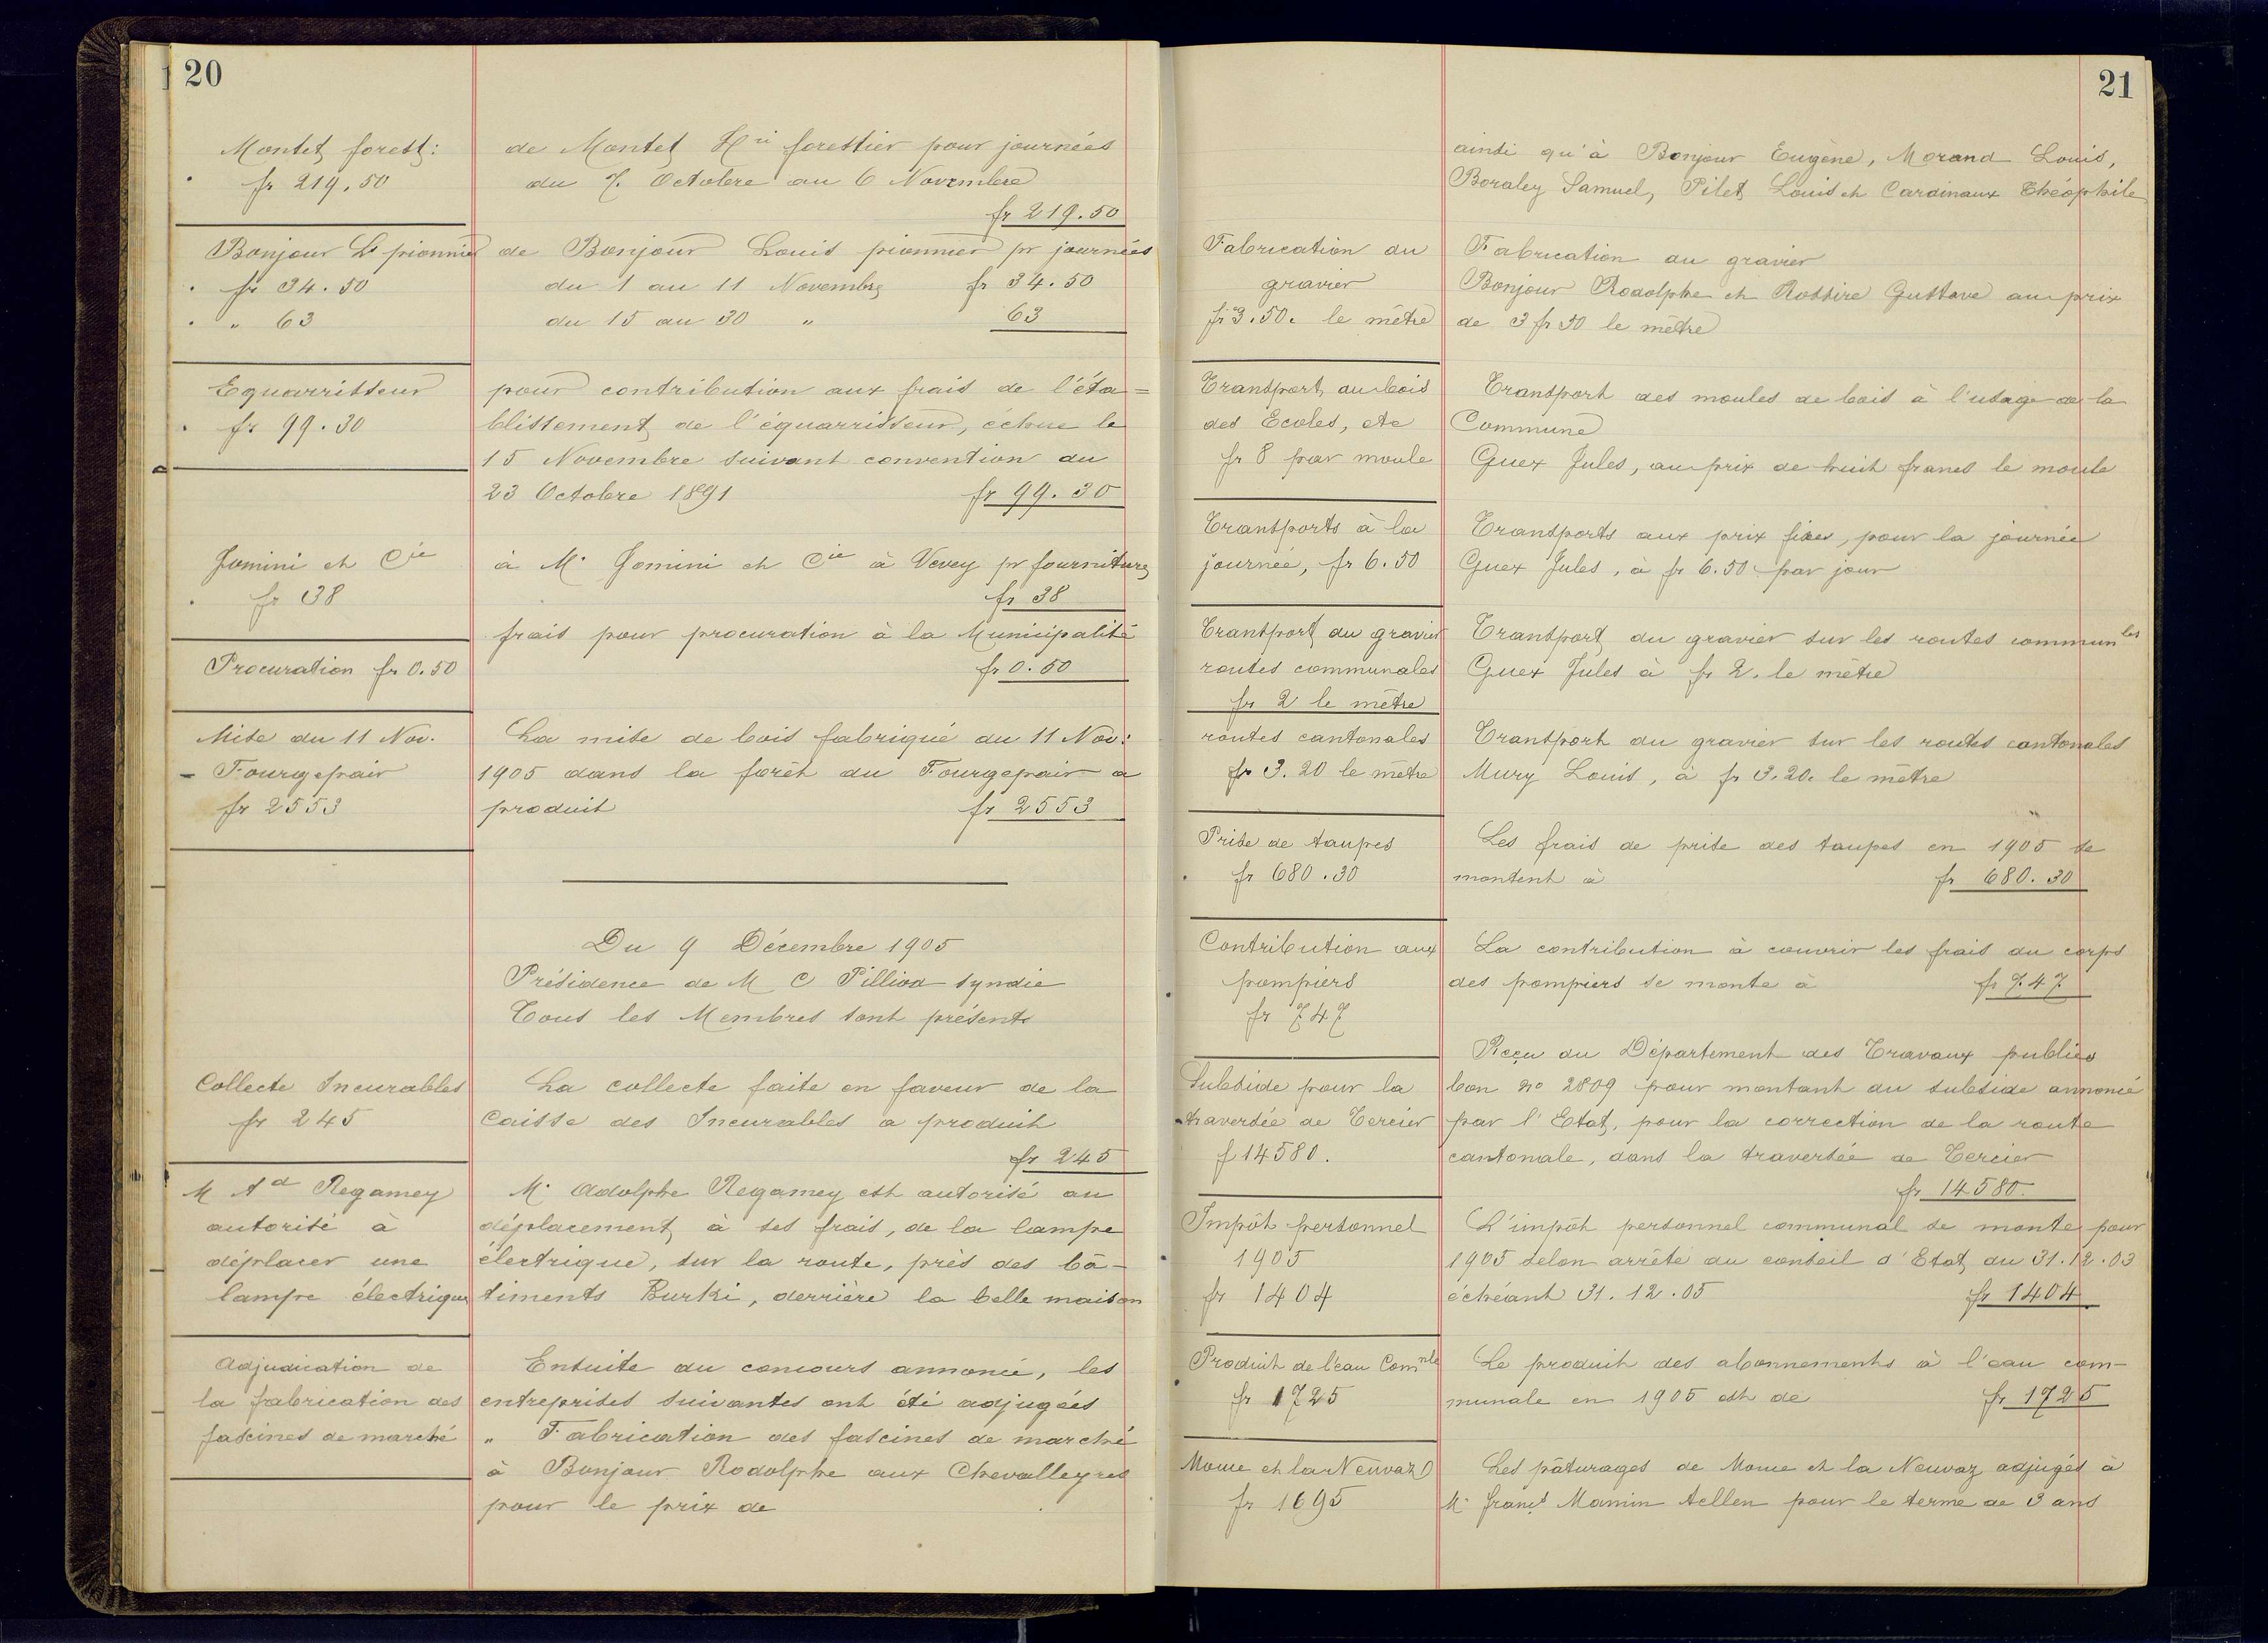 20
Montet forest:
fr 219.50
de Montet Hri forestier pour journées
du 7. Octobre au 6 Novembre
fr 219.50
Bonjour Ls pionnier
fr 34.50
" 63
de Bonjour Louis pionnier pr journées
du 1 au 11 Novembre fr 34.50
du 15 au 30 " 63
Equarrisseur
fr 99.30
pour contribution aux frais de l'éta=
blissement de l'équarrisseur, échue le
15 Novembre suivant convention du
23 Octobre 1891 fr 99.30
Jomini et Cie
fr 38
à M. Jomini et Cie à Vevey pr fournitures
fr 38
Procuration fr 0.50
frais pour procuration à la Municipalité
fr 0.50
Mise du 11 Nov.
Fourgepair
fr 2553
La mise de bois fabriqué du 11 Nov:
1905 dans la forêt du Fourgepair a
produit fr 2553
Du 9 Décembre 1905
Présidence de M C Pilliod syndic
Tous les Membres sont présents
Collecte Incurables
fr 245
La collecte faite en faveur de la
Caisse des Incurables a produit
fr 245
M Ad Regamey
autorisé à
déplacer une
lampe électrique
M. Adolphe Regamey est autorisé au
déplacement à ses frais, de la lampe
électrique, sur la route, près des bâ-
timents Burki, derrière la belle maison
Adjudication de
la fabrication des
fascines de marché
Ensuite du concours annoncé, les
entreprises suivantes ont été adjugées
" Fabrication des fascines de marché
à Bonjour Rodolphe aux Chevalleyres
pour le prix de
21
ainsi qu'à Bonjour Eugène, Morand Louis,
Boraley Samuel, Pilet Louis et Cardinaux Théophile
Fabrication du
gravier
fr 3.50. le mètre
Fabrication du gravier
Bonjour Rodolphe et Rossire Gustave au prix
de 3 fr 50 le mètre
Transport du bois
des Ecoles, etc
fr 8 par moule
Transport des moules de bois à l'usage de la
Commune
Guex Jules, au prix de huit francs le moule
Transports à la
journée, fr 6.50
Transports aux prix fixes, pour la journée
Guex Jules, à fr 6.50 par jour
Transport du gravier
routes communales
fr 2 le mètre
Transport du gravier sur les routes communles
Guex Jules à fr 2. le mètre
routes cantonales
fr 3.20 le mètre
Transport du gravier sur les routes cantonales
Mury Louis, à fr 3.20. le mètre
Prise de taupes
fr 680.30
Les frais de prise des taupes en 1905 se
montent à fr 680.30
Contribution aux
pompiers
fr 747
La contribution à couvrir les frais du corps
des pompiers se monte à fr 747
Subside pour la
traversée de Tercier
f 14580.
Reçu du Département des Travaux publics
bon no 2809 pour montant du subside annoncé
par l'Etat, pour la correction de la route
cantonale, dans la traversée de Tercier
fr 14580.
Impôt personnel
1905
fr 1404
L'impôt personnel communal se monte pour
1905 selon arrêté du conseil d'Etat du 31.12.03
échéant 31.12.05 fr 1404
Produit de l'eau Comnle
fr 1725
Le produit des abonnements à l'eau com-
munale en 1905 est de fr 1725
Mome et la Neuvaz
fr 1695
Les pâturages de Mome et la Neuvaz adjugés à
M. Mamin Aellen pour le terme de 3 ans